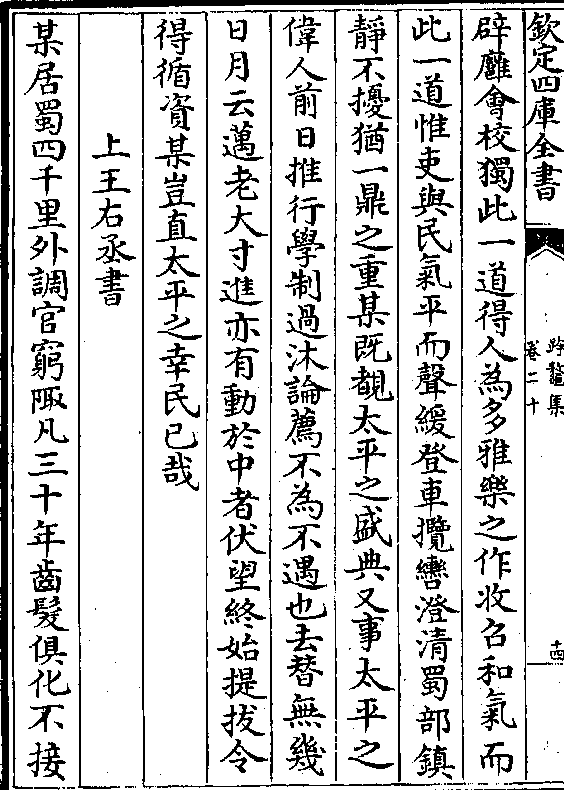 欽定四庫全書
跨鼇集
卷二十
十四
辟廱會校獨此一道得人為多雅樂之作收召和氣而
此一道惟吏與民氣平而聲緩登車攬轡澄清蜀部鎮
靜不擾猶一鼎之重某既覩太平之盛典又事太平之
偉人前日推行學制過沐論薦不為不遇也去替無幾
日月云邁老大寸進亦有動於中者伏望終始提拔令
得循資某豈直太平之幸民已哉
上王右丞書
某居蜀四千里外調官窮陬凡三十年齒髮俱化不接